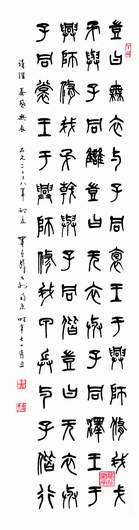 豈曰無衣與子同袍王于興師修我戈
矛與子同讎豈曰無衣與子同澤王于
興師修我矛戟與子偕作豈曰無衣與
子同裳王于興師修我甲兵與子偕行
詩經 秦風 無衣